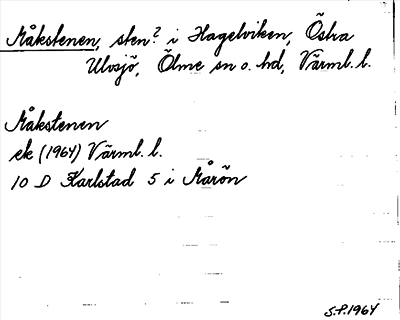 Måkstenen, sten? i Hagelviken, Östra
Ulvsjö, Ölme sn o. hd, Värml. l.
Måkstenen
ek (1964) Värml. l.
10 D Karlstad 5 i Mårön
S.P. 1964